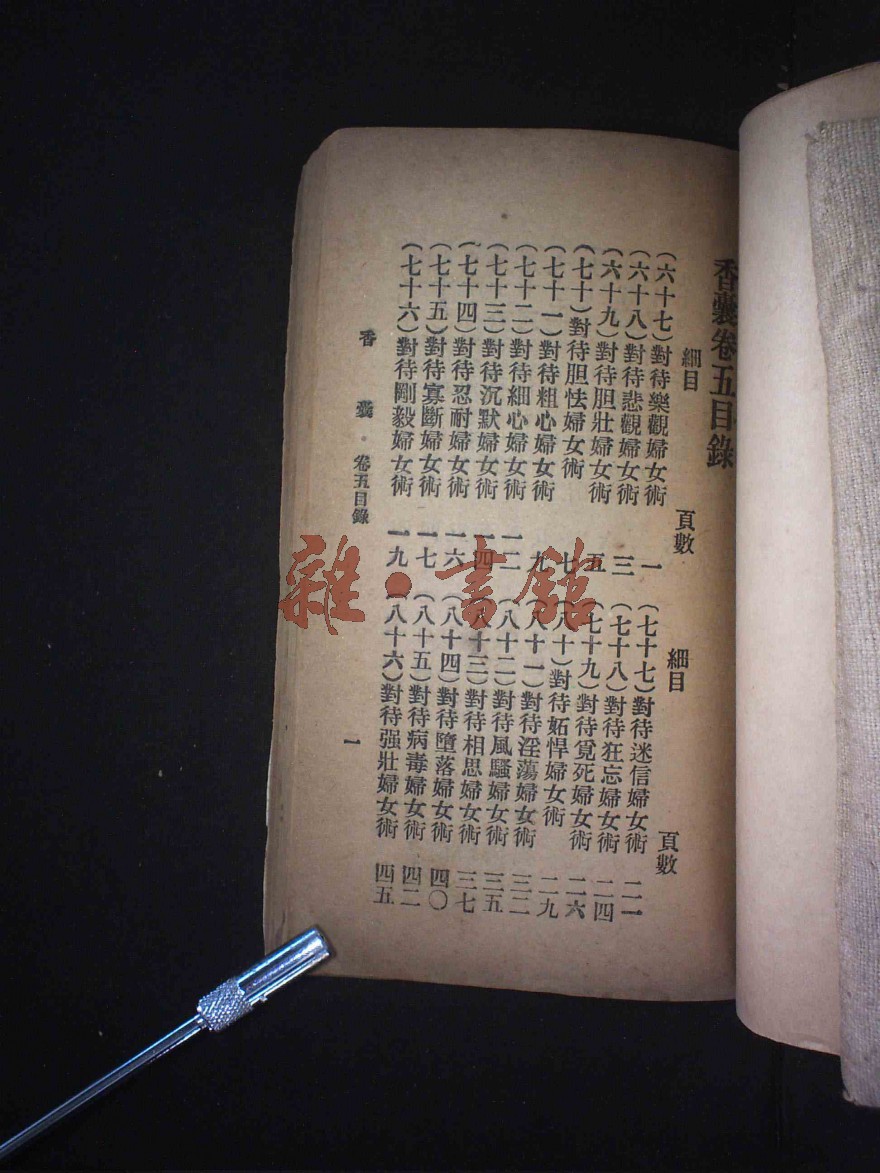 香囊卷五目錄
細目
頁數
(六十七)對待樂觀婦女術 一
(六十八)對待悲觀婦女術 三
(六十九)對待胆壯婦女術 五
(七十)對待胆怯婦女術 七
(七十一)對待粗心婦女術 九
(七十二)對待細心婦女術 一二
(七十三)對待沉默婦女術 一四
(七十四)對待忍耐婦女術 一六
(七十五)對待寡斷婦女術 一七
(七十六)對待剛毅婦女術 一九
細目
頁數
(七十七)對待迷信婦女術 二一
(七十八)對待狂忘婦女術 二四
(七十九)對待覓死婦女術 二六
(八十)對待妬悍婦女術 二九
(八十一)對待淫蕩婦女術 三二
(八十二)對待風騷婦女術 三五
(八十三)對待相思婦女術 三七
(八十四)對待墮落婦女術 四〇
(八十五)對待病毒婦女術 四二
(八十六)對待强壯婦女術 四五
香囊·卷五目錄
一
雜·書館